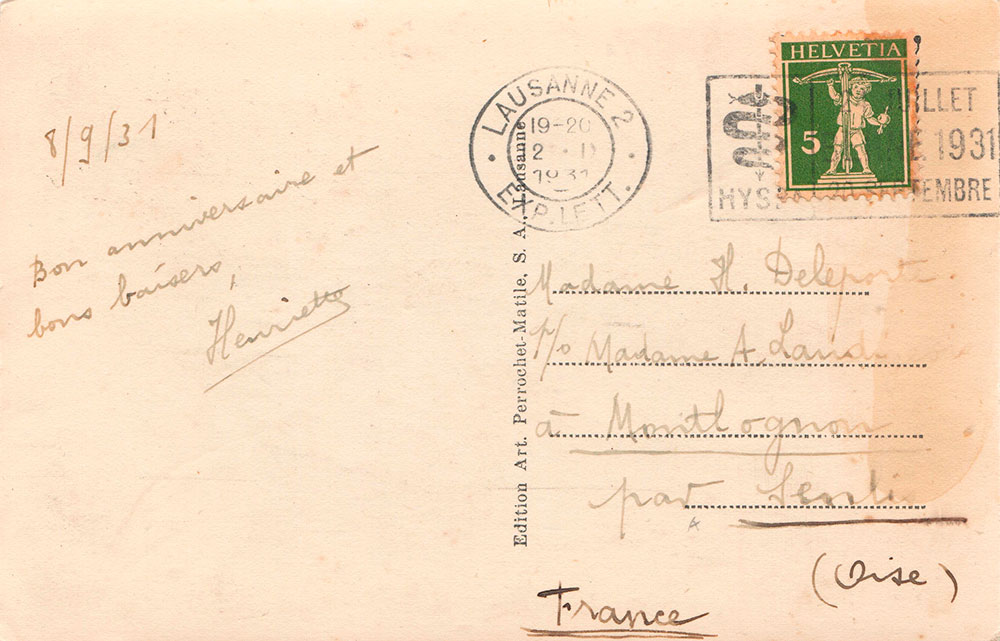 8/9/31
Bon anniversaire et
bons baisers,
Henriette
Edition Art. Perrochet-Matile, S. A., Lausanne
LAUSANNE 2
19-20
1931
EXP. LETT.
HELVETIA
5
JUILLET
1931
HYSPA
SEPTEMBRE
Madame H. Deleporte
p/o Madame A.
à Montlognon
par Senlis
(Oise)
France